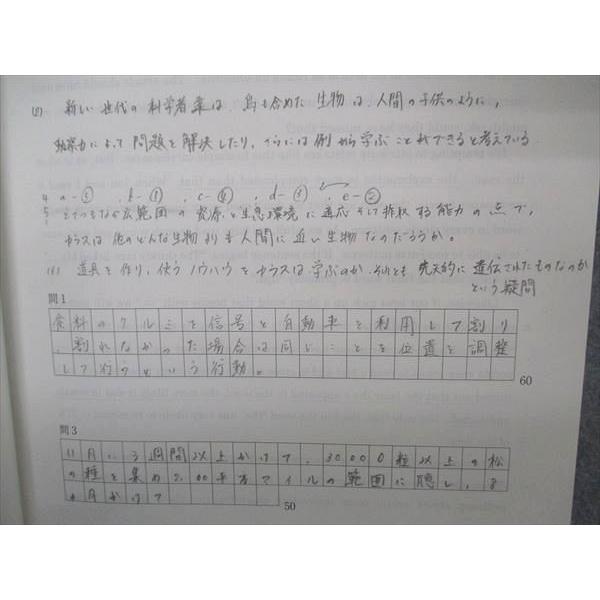 (2) 新しい世代の科学者達は、鳥も含めた生物は、人間の子供のように、
洞察力によって問題を解決したり、さらには例から学ぶことができると考えている
4 a-⑤ , b-① , c-④ , d-③ , e-②
5 とてつもなく広範囲の資源と生息環境に適応そして搾取する能力の点で、
カラスは他のどんな生物よりも人間に近い生物なのだろうか。
(6) 道具を作り、使うノウハウをカラスは学ぶのか、それとも先天的に遺伝されたものなのか
という疑問
問1
食料のクルミを信号と自動車を利用して割り
、割れなかった場合は同じことを位置を調整
して行うという行動。
60
問3
11月に3週間以上かけて、30000粒以上の松
の種を集め200平方マイルの範囲に隠し、8
ヵ月かけて
50